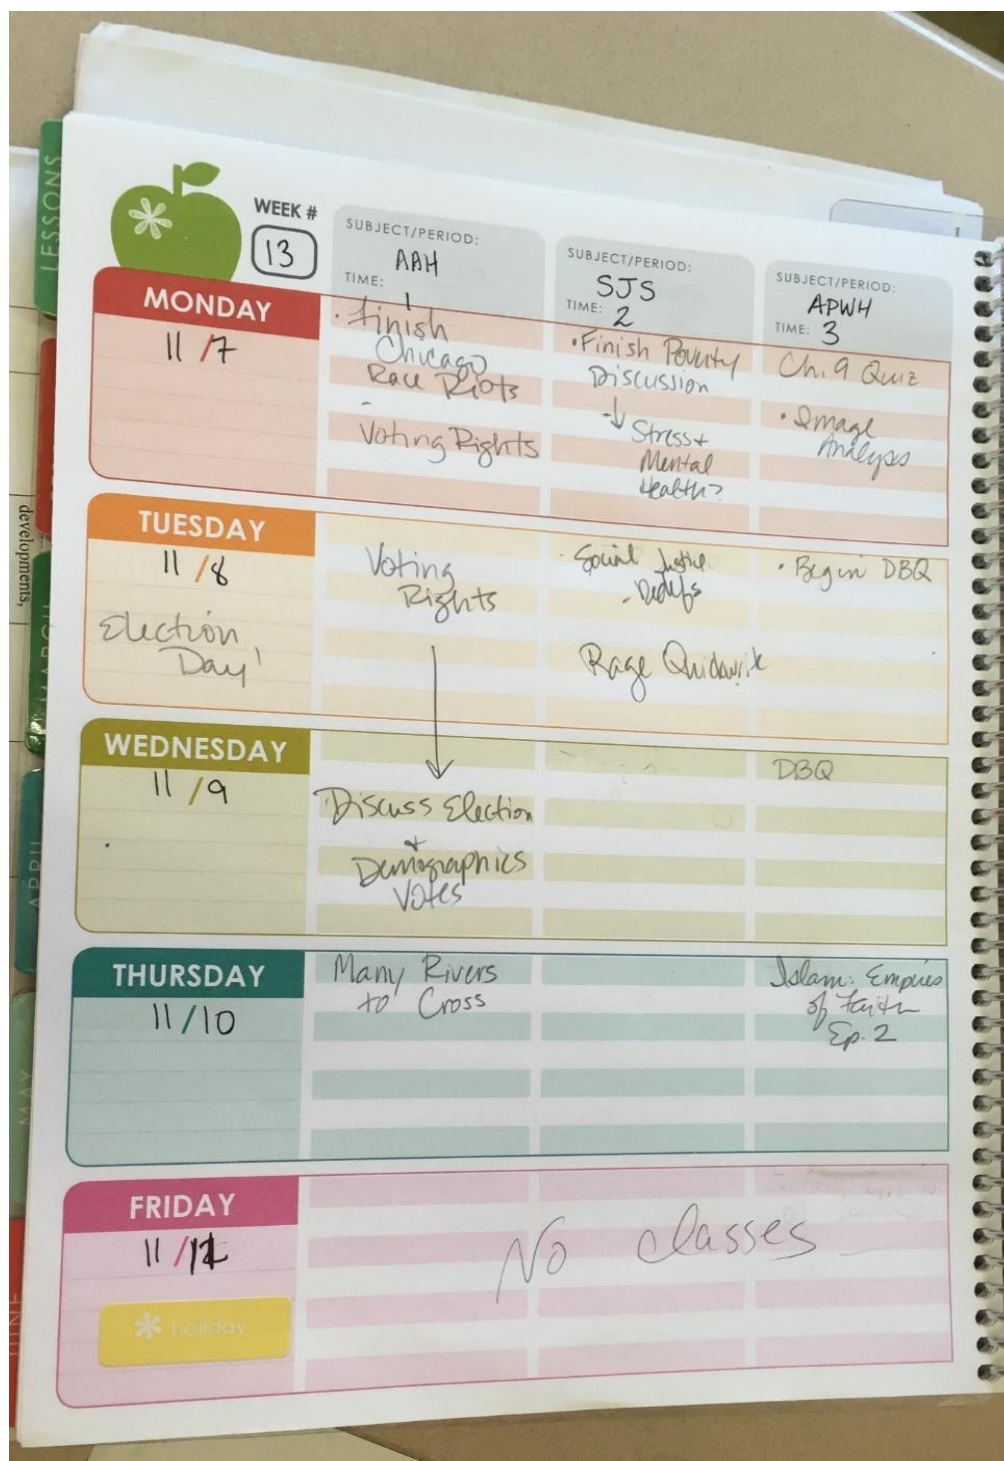 LESSONS
WEEK #
13
SUBJECT/PERIOD:
AAH
TIME: 1
SUBJECT/PERIOD:
SJS
TIME: 2
SUBJECT/PERIOD:
APWH
TIME: 3
MONDAY
11/7
• Finish
Chicago
Race Riots
-
Voting Rights
• Finish Poverty
Discussion
↓ Stress +
Mental
Health?
Ch. 9 Quiz
• Image
Analysis
TUESDAY
11/8
Election
Day!
Voting
Rights
- Social Justice
Rage Quickwrite
• Begin DBQ
WEDNESDAY
11/9
Discuss Election
+
Demographics
Votes
DBQ
THURSDAY
11/10
Many Rivers
to Cross
Islam: Empires
of Faith
Ep. 2
FRIDAY
11/11
* holiday
No classes
developments,
MARCH
APRIL
MAY
JUNE